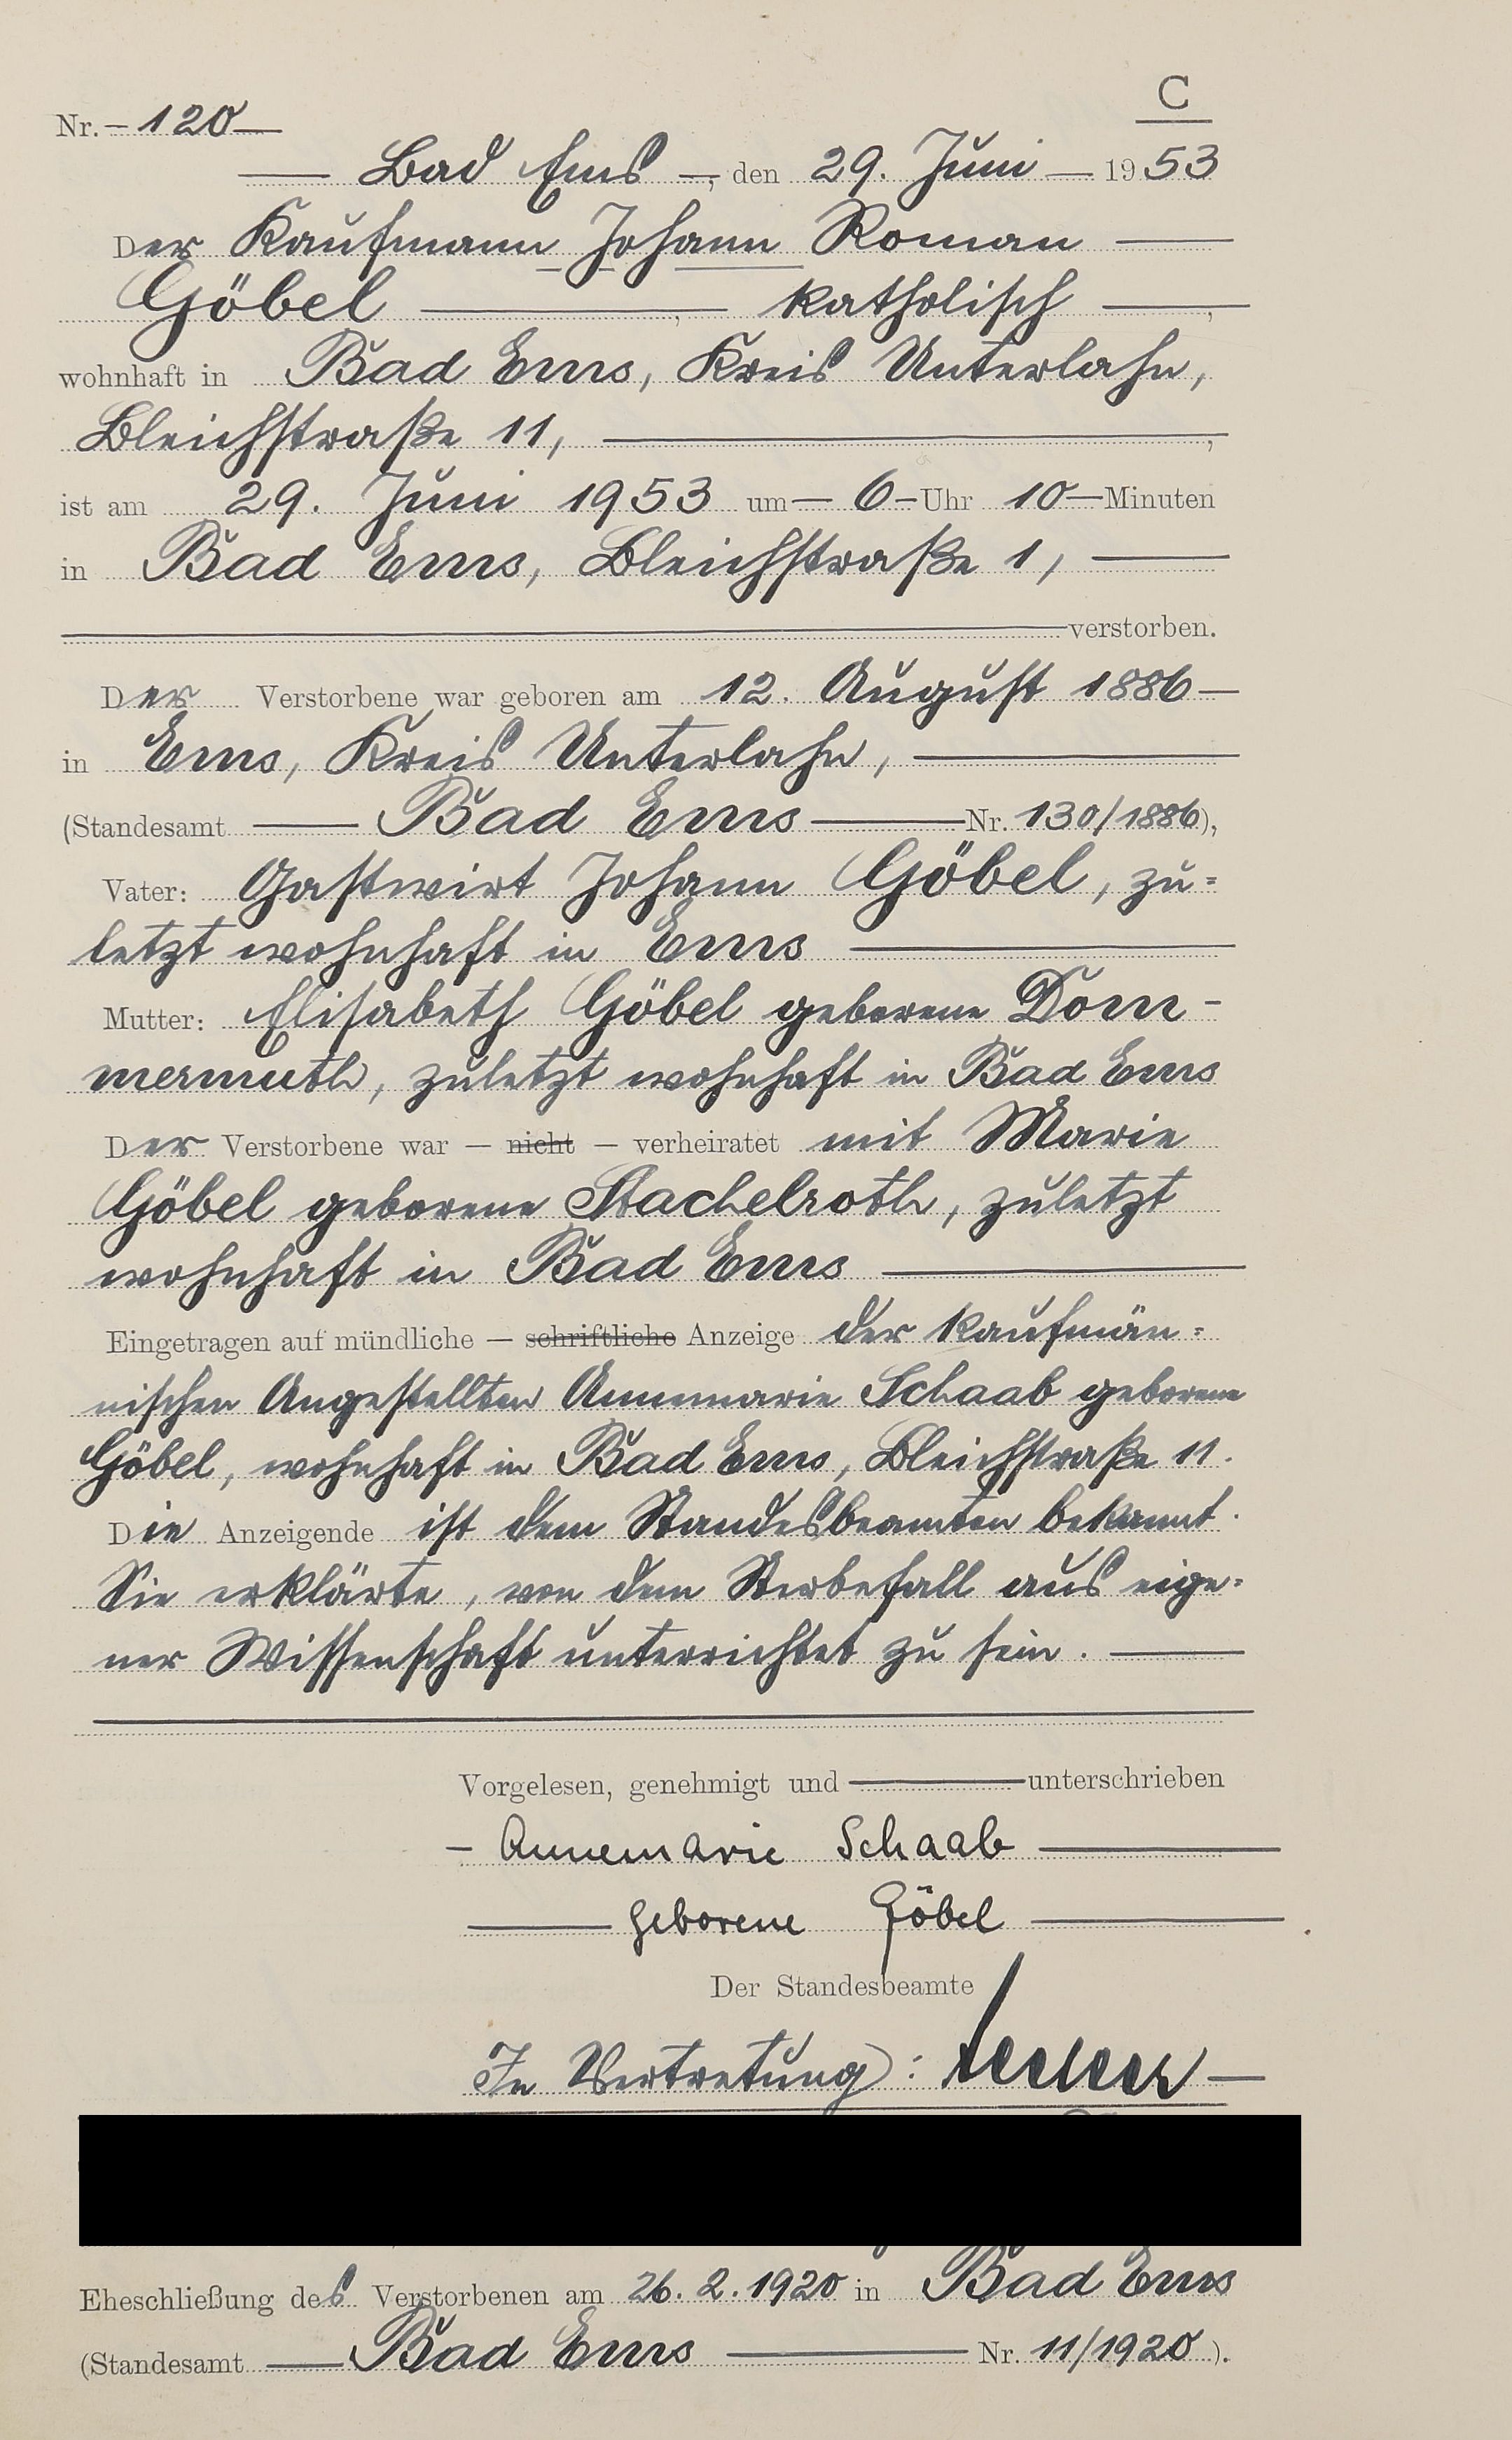 C
Nr. – 120 —
— Bad Ems —, den 29. Juni — 1953
Der Kaufmann Johann Roman —
Göbel —, — katholisch —,
wohnhaft in Bad Ems, Kreis Unterlahn,
Bleichstraße 11, —,
ist am 29. Juni 1953 um — 6 – Uhr 10 — Minuten
in Bad Ems, Bleichstraße 1, —
— verstorben.
Der Verstorbene war geboren am 12. August 1886 —
in Ems, Kreis Unterlahn, —
(Standesamt — Bad Ems — Nr. 130/1886),
Vater: Gastwirt Johann Göbel, zu=
letzt wohnhaft in Ems —
Mutter: Elisabeth Göbel geborene Dom-
mermuth, zuletzt wohnhaft in Bad Ems
Der Verstorbene war — nicht — verheiratet mit Marie
Göbel geborene Stachelroth, zuletzt
wohnhaft in Bad Ems —
Eingetragen auf mündliche — schriftliche Anzeige der kaufmän=
nischen Angestellten Annemarie Schaab geborene
Göbel, wohnhaft in Bad Ems, Bleichstraße 11.
Die Anzeigende ist dem Standesbeamten bekannt.
Sie erklärte, von dem Sterbefall aus eige=
ner Wissenschaft unterrichtet zu sein. —
Vorgelesen, genehmigt und — unterschrieben
– Annemarie Schaab —
— geborene Göbel —
Der Standesbeamte
In Vertretung: —
Eheschließung des Verstorbenen am 26.2.1920 in Bad Ems
(Standesamt — Bad Ems — Nr. 11/1920).